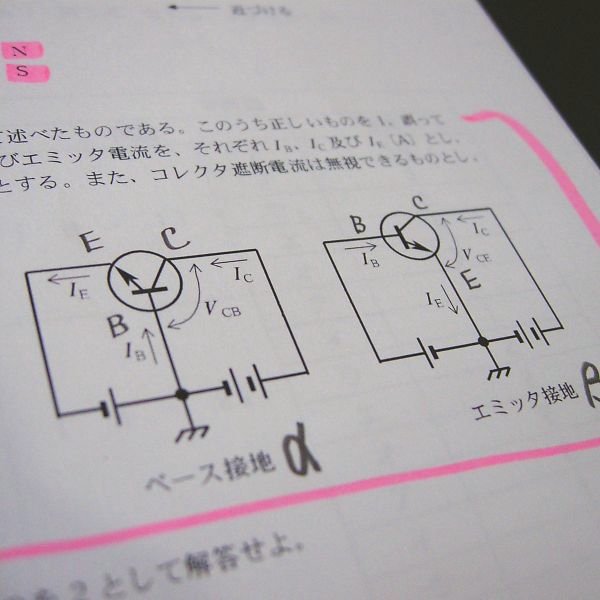 近づける
N
S
述べたものである。このうち正しいものを1、誤って
びエミッタ電流を、それぞれ IB、IC及び IE〔A〕とし、
とする。また、コレクタ遮断電流は無視できるものとし、
E C
IE IC
VCB
B
IB
ベース接地 α
B C
IB IC
VCE
E
IE
エミッタ接地 β
2として解答せよ。